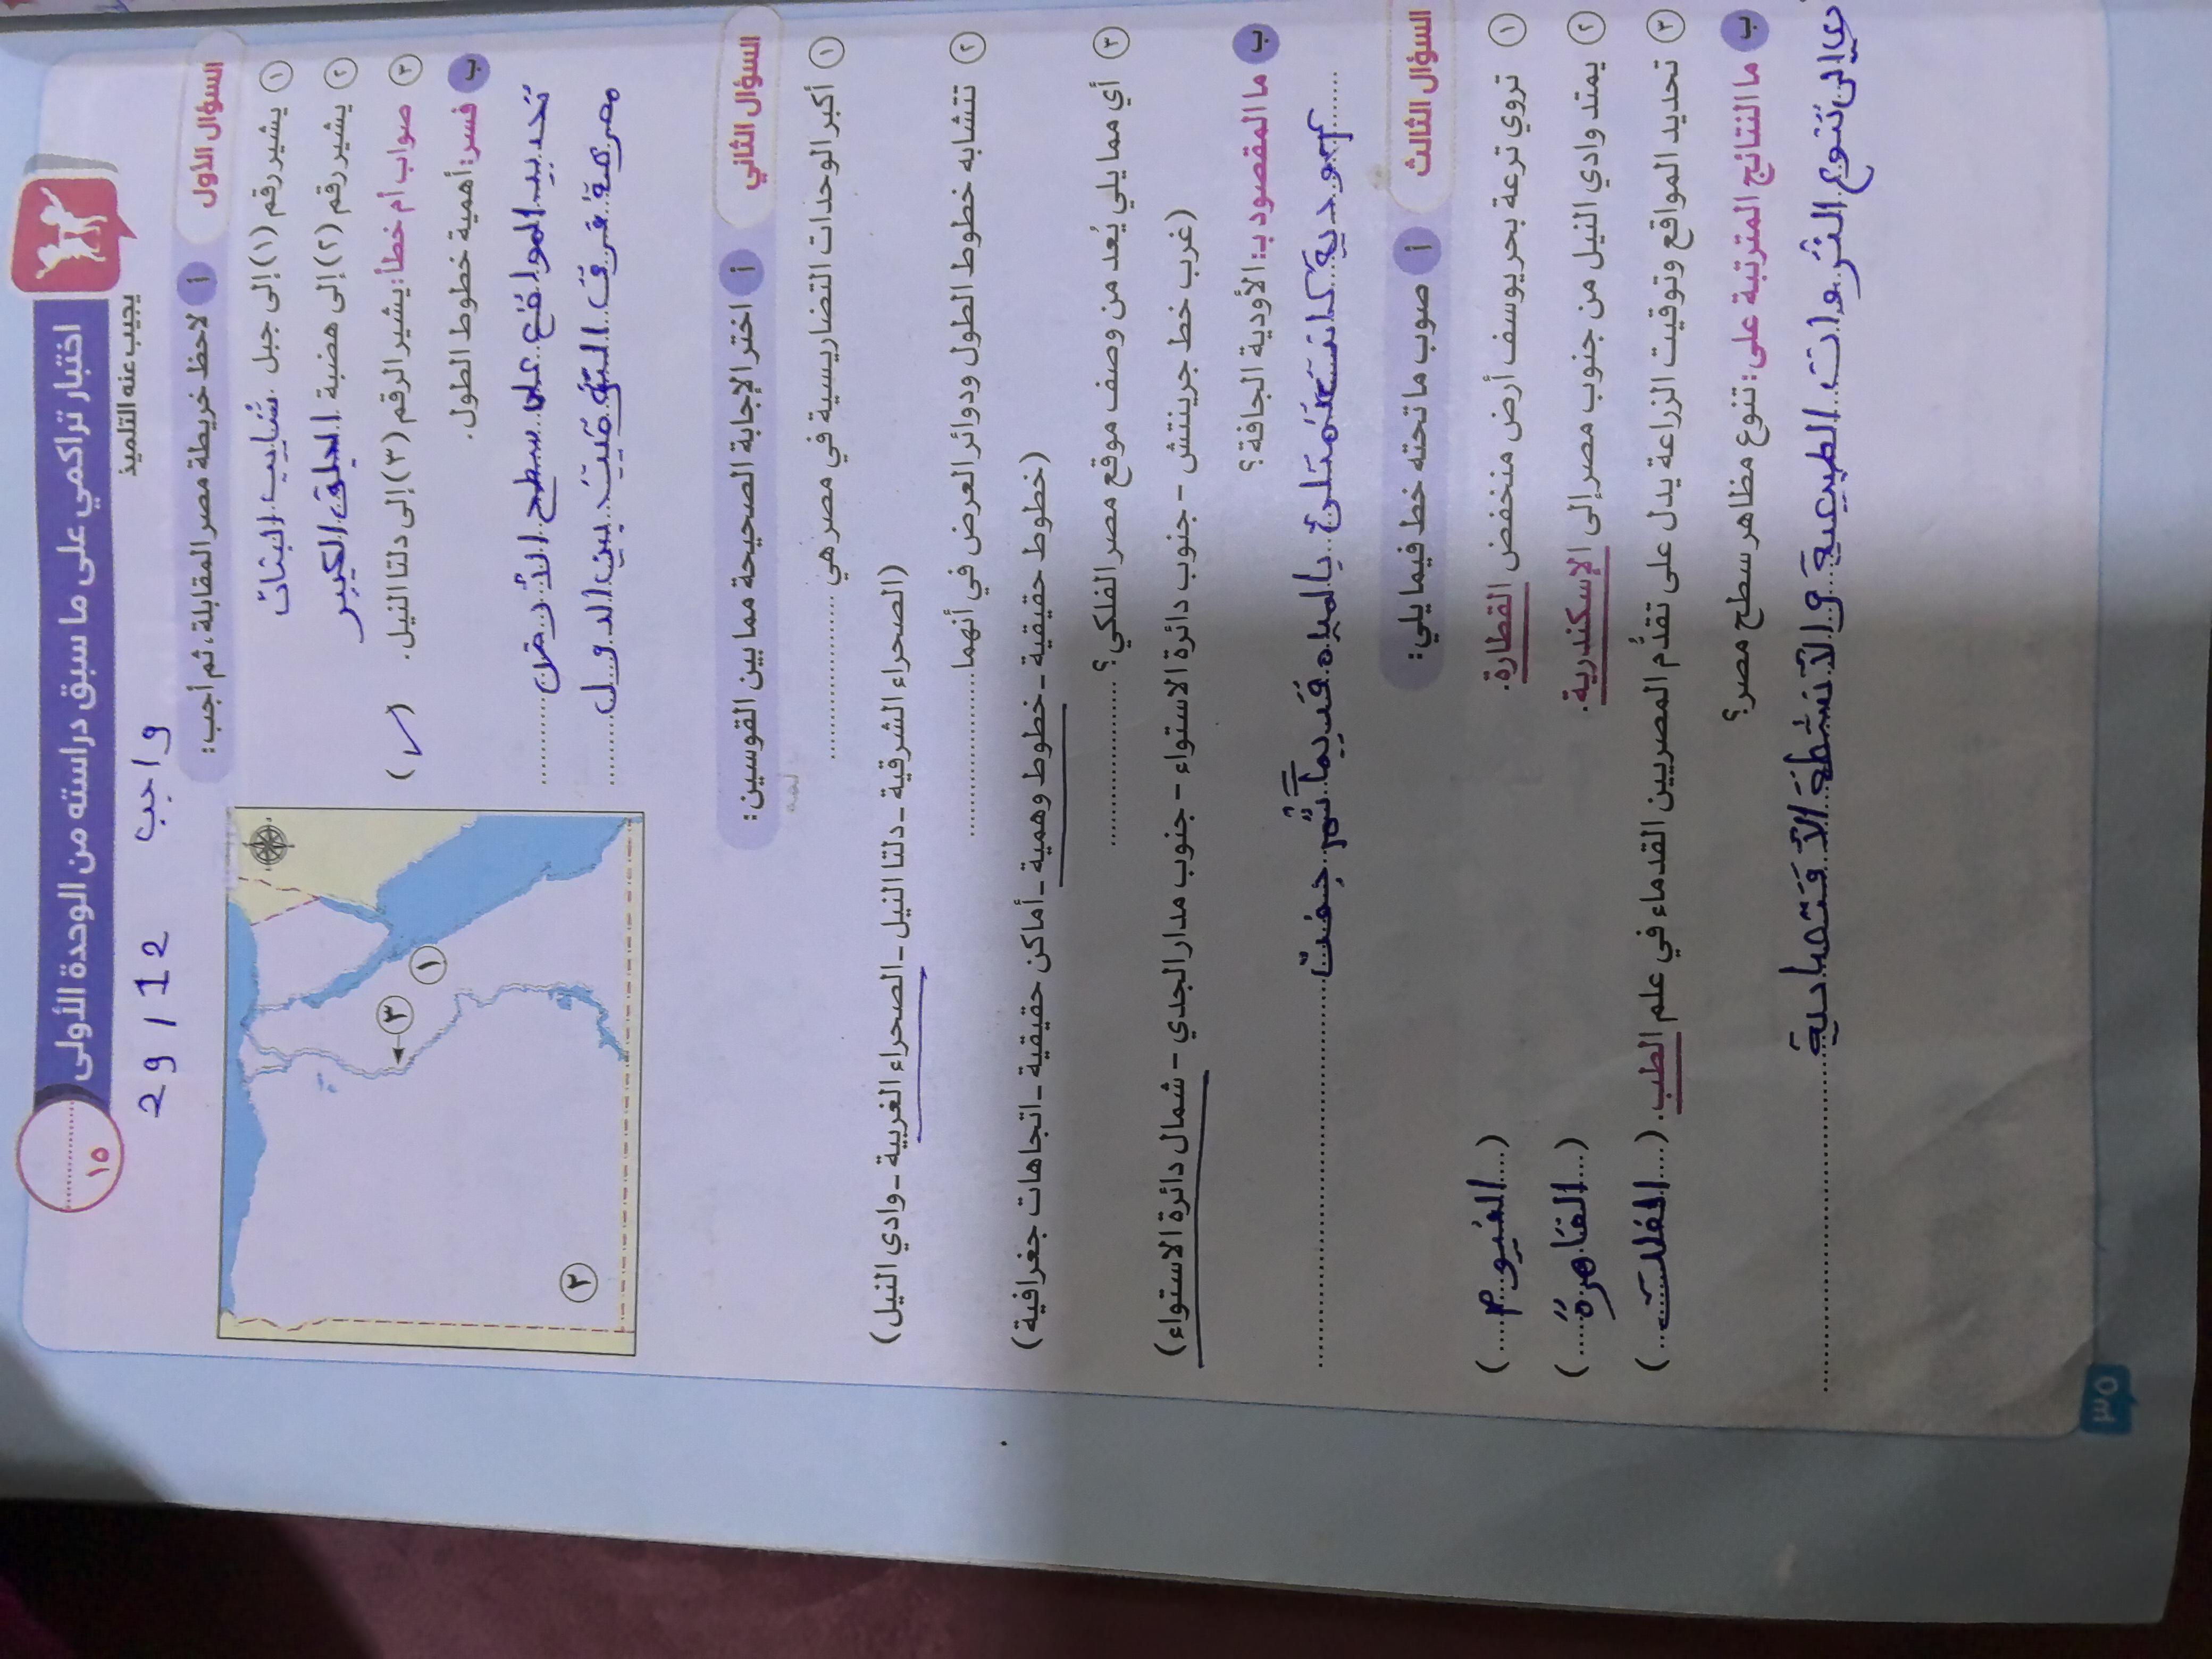 اختبار تراكمي على ما سبق دراسته من الوحدة الأولى
١٥
يجيب عنه التلميذ
واجب 29/12
السؤال الأول
أ لاحظ خريطة مصر المقابلة، ثم أجب:
١ يشير رقم (١) إلى جبل شايب البنات
٢ يشير رقم (٢) إلى هضبة الجلف الكبير
٣ صواب أم خطأ: يشير الرقم (٣) إلى دلتا النيل. (✓)
ب فسر: أهمية خطوط الطول.
تحديد المواقع على سطح الأرض
معرفة فرق التوقيت بين الدول
١
٢
٣
السؤال الثاني
أ اختر الإجابة الصحيحة مما بين القوسين:
١ أكبر الوحدات التضاريسية في مصر هي ..........
(الصحراء الشرقية - دلتا النيل - الصحراء الغربية - وادي النيل)
٢ تتشابه خطوط الطول ودوائر العرض في أنهما ..........
(خطوط حقيقية - خطوط وهمية - أماكن حقيقية - اتجاهات جغرافية)
٣ أي مما يلي يُعد من وصف موقع مصر الفلكي؟ ..........
(غرب خط جرينتش - جنوب دائرة الاستواء - جنوب مدار الجدي - شمال دائرة الاستواء)
ب ما المقصود بـ: الأودية الجافة؟
أودية كانت تمتلئ بالمياه قديماً ثم جفت
السؤال الثالث
أ صوب ما تحته خط فيما يلي:
١ تروي ترعة بحر يوسف أرض منخفض القطارة. (الفيوم)
٢ يمتد وادي النيل من جنوب مصر إلى الإسكندرية. (القاهرة)
٣ تحديد المواقع وتوقيت الزراعة يدل على تقدُّم المصريين القدماء في علم الطب. (الفلك)
ب ما النتائج المترتبة على: تنوع مظاهر سطح مصر؟
تنوع الثروات الطبيعية والأنشطة الاقتصادية
٣٥